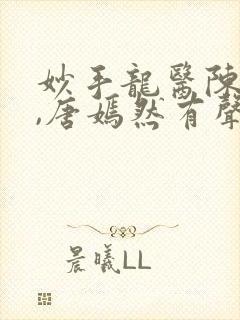 妙手龍醫陳
,唐嫣然有聲
晨曦LL